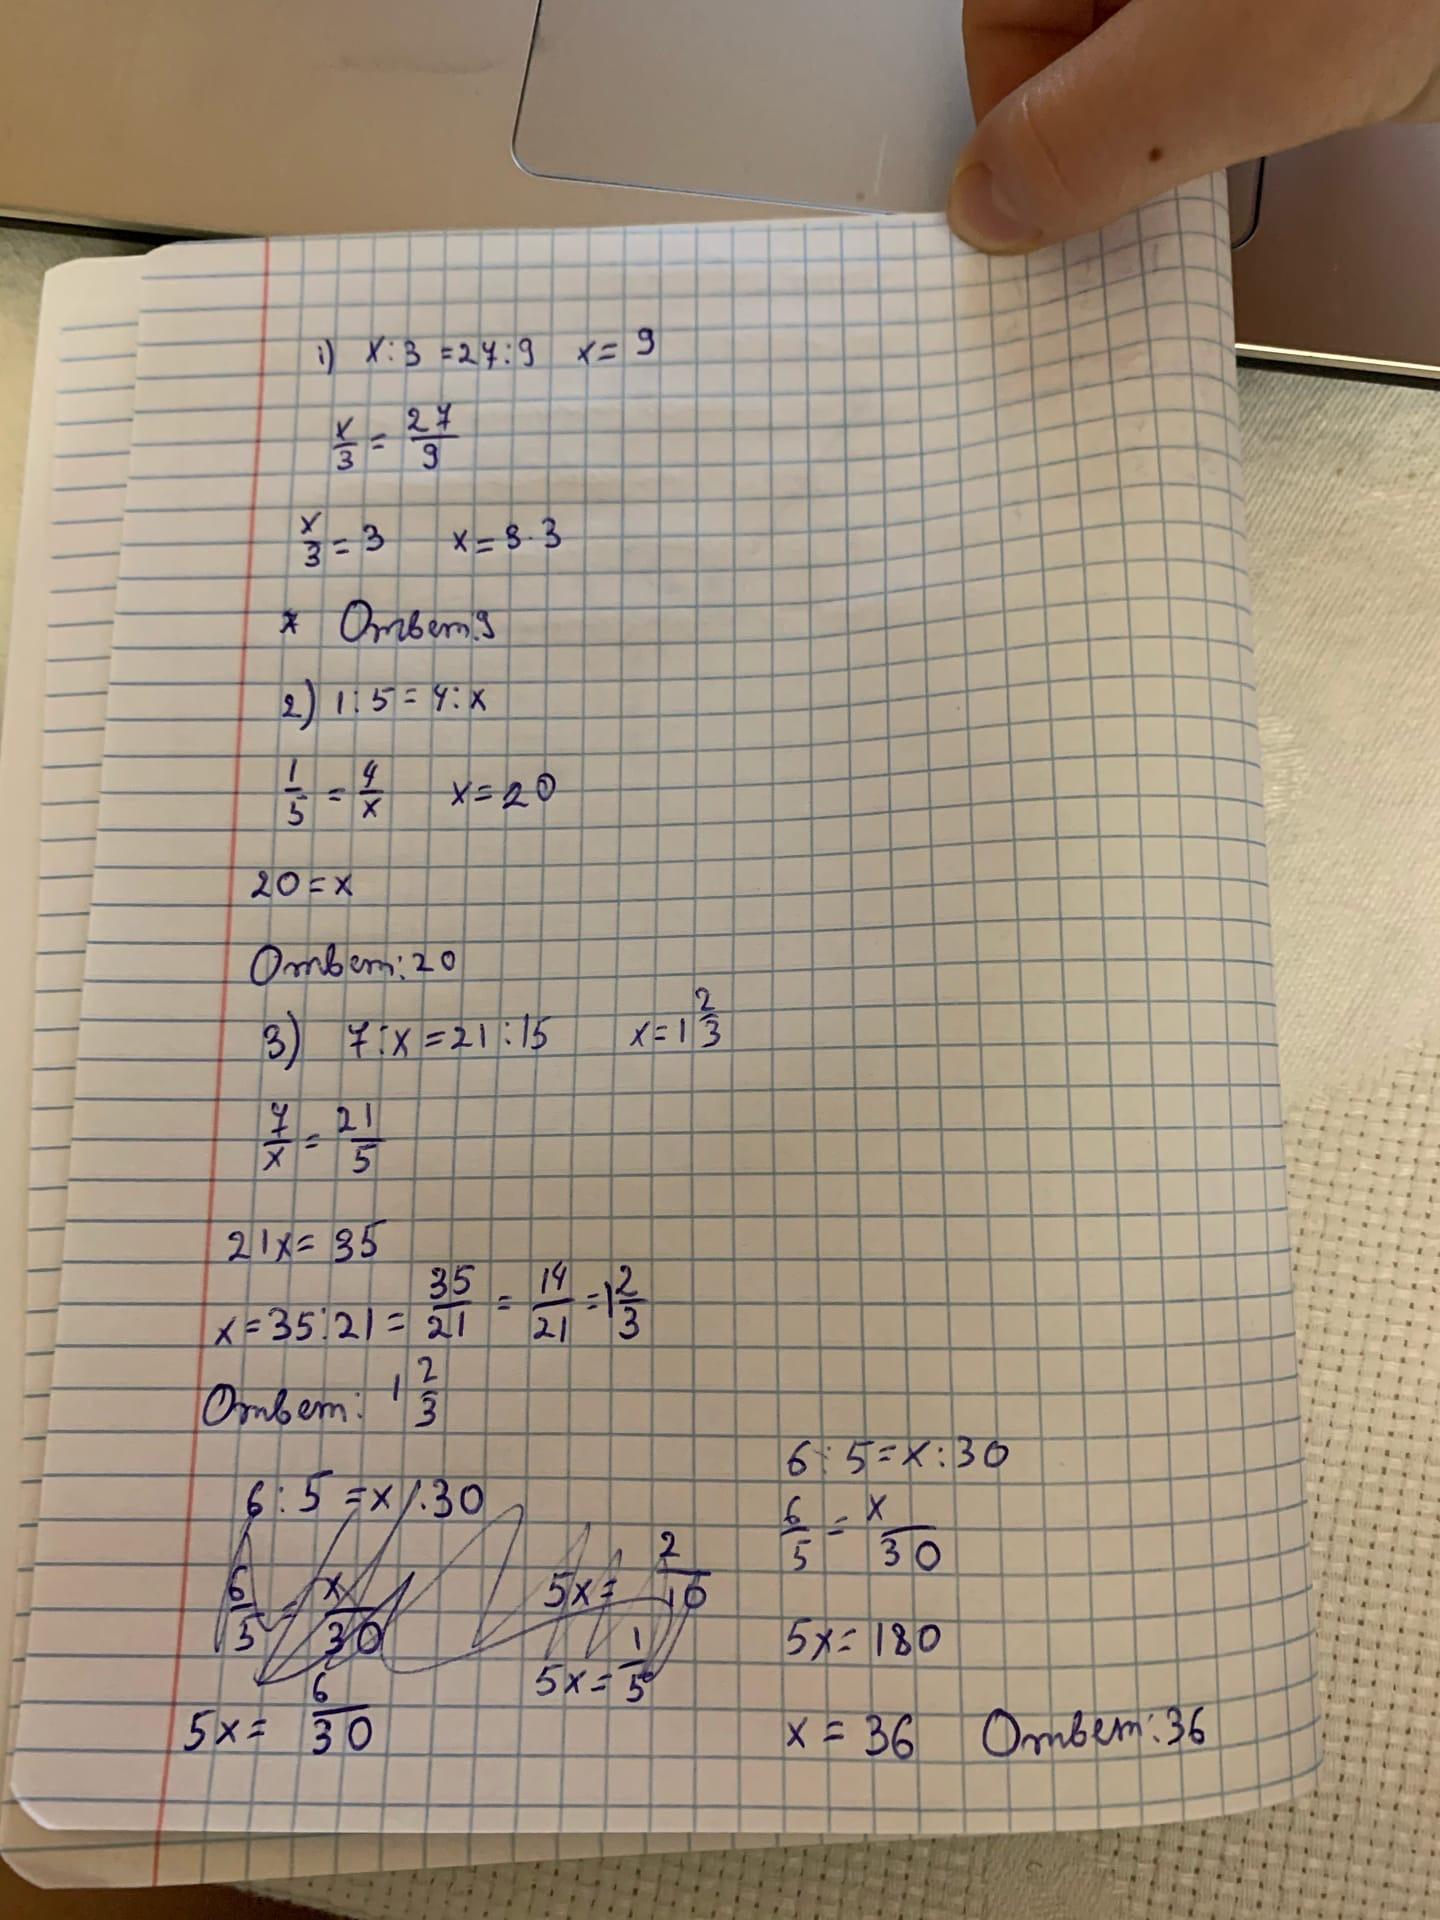 1) x:3 = 27:9 x = 9
x/3 = 27/9
x/3 = 3 x = 3·3
Ответ: 9
2) 1:5 = 4:x
1/5 = 4/x x = 20
20 = x
Ответ: 20
3) 7:x = 21:15 x = 1 2/3
7/x = 21/5
21x = 35
x = 35:21 = 35/21 = 14/21 = 1 2/3
Ответ: 1 2/3
6:5 = x:30
6/5 = x/30
5x = 6/30
5x = 2/10
5x = 1/5
6:5 = x:30
6/5 = x/30
5x = 180
x = 36 Ответ: 36